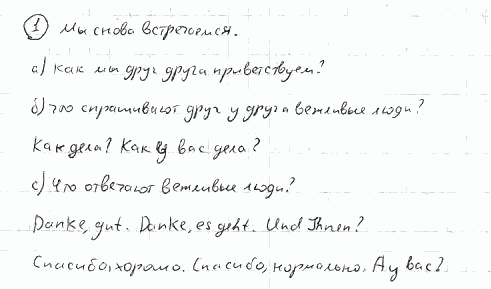 ① Мы снова встречаемся.
а) Как мы друг друга приветствуем?
б) Что спрашивают друг у друга вежливые люди?
Как дела? Как у вас дела?
с) Что отвечают вежливые люди?
Danke, gut. Danke, es geht. Und Ihnen?
Спасибо, хорошо. Спасибо, нормально. А у вас?